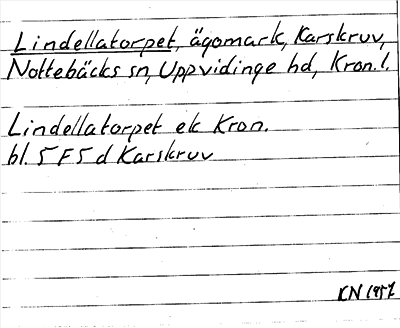 Lindellatorpet, ägomark, Karskruv,
Nottebäcks sn, Uppvidinge hd, Kron.l.
Lindellatorpet ek Kron.
bl. 5 F 5 d Karskruv
KN 1957